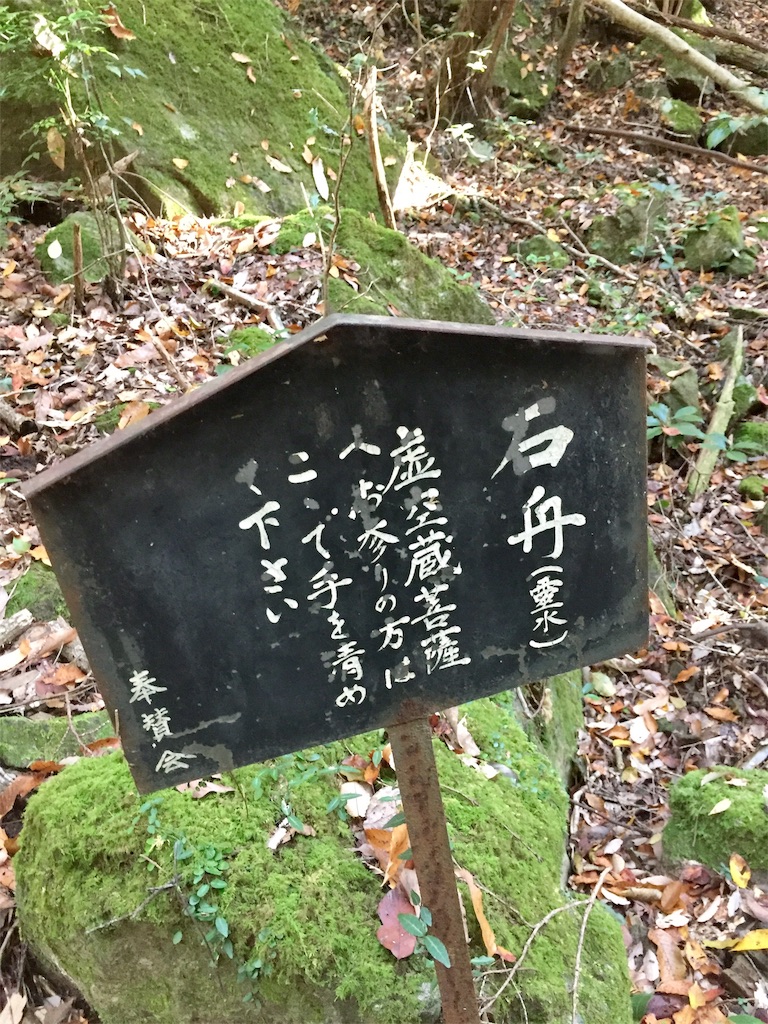 石舟(垂水)
虚空蔵菩薩
へお参りの方は
こゝで手を清め
て下さい
奉賛会